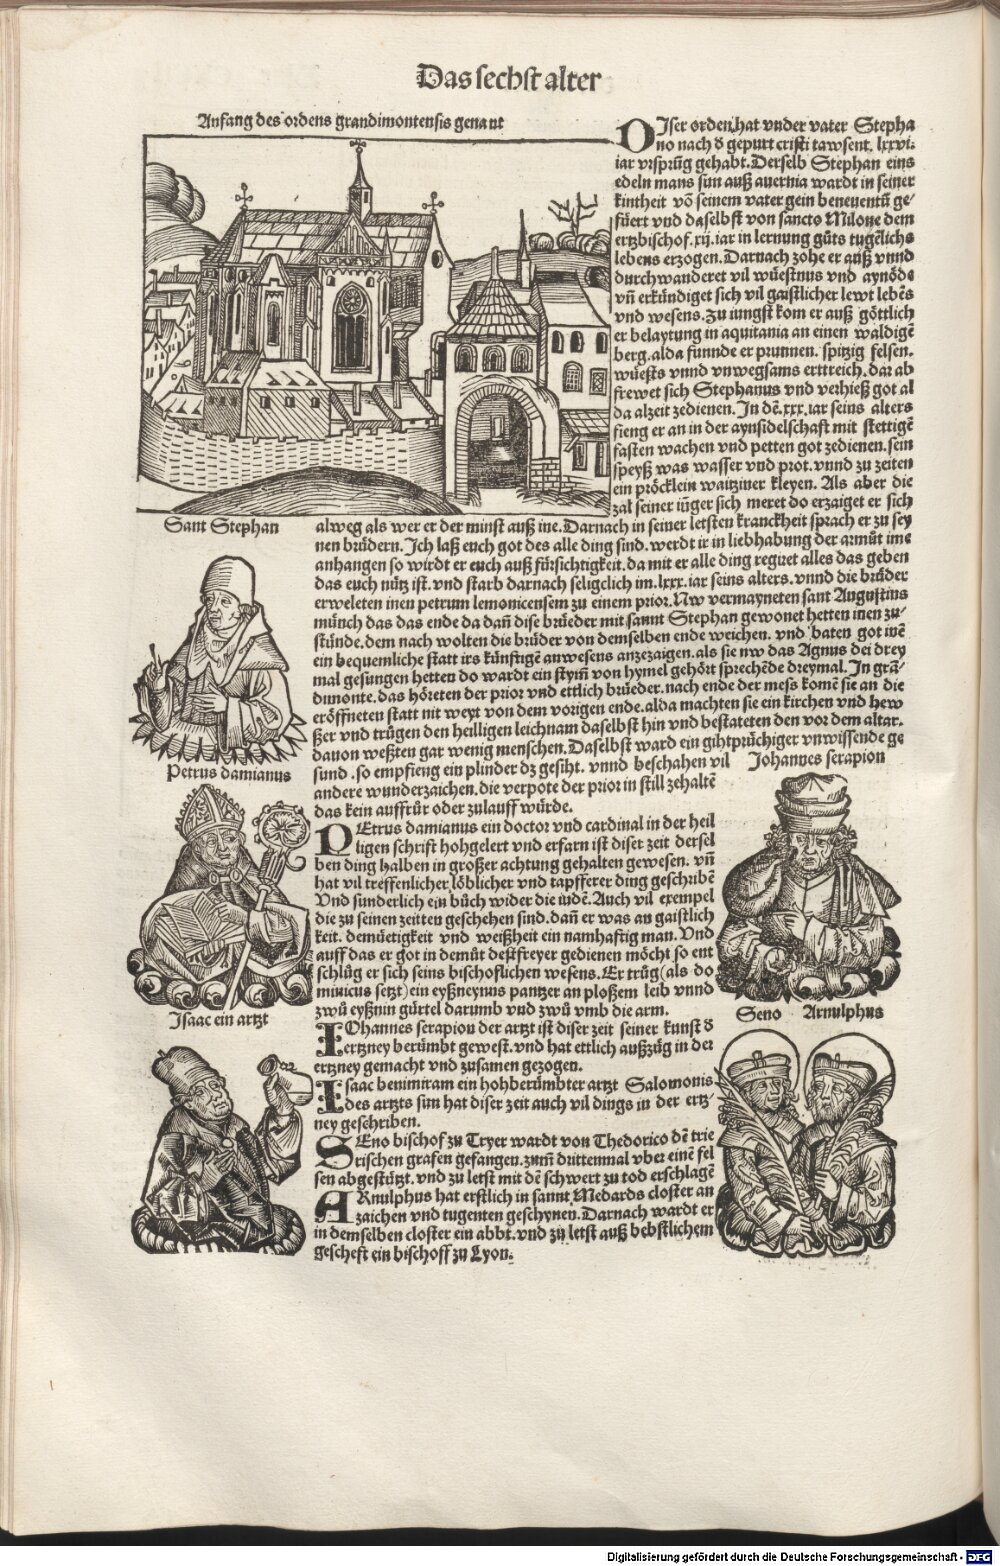 Das sechst alter
Anfang des ordens grandimontensis genant
DIser orden hat vnder vater Stepha
no nach d̕ gepurt cristi tawsent. lxxvi.
iar vrsprũg gehabt. Derselb Stephan eins
edeln mans sun auß auernia wardt in seiner
kintheit võ seinem vater gein beneuentũ ge-
fürt vnd daselbst von sancto Milone dem
ertzbischof. xij. iar in lernung gůts tugẽlichs
lebens erzogen. Darnach zohe er auß vnnd
durchwanderet vil wüestnus vnd aynöde
vñ erkündiget sich vil gaistlicher lewt lebẽs
vnd wesens. Zu iungst kom er auß göttlich
er belaytung in aquitania an einen waldigẽ
berg. alda funnde er prunnen. spitzig felsen.
wüests vnnd vnwegsams erttreich. dar ab
frewet sich Stephanus vnd verhieß got al
da alzeit zedienen. In dẽ. xxx. iar seins alters
fieng er an in der aynsidelschaft mit stettigẽ
fasten wachen vnd petten got zedienen. sein
speyß was wasser vnd prot. vnnd zu zeiten
ein pröcklein waitziner kleyen. Als aber die
zal seiner iũger sich meret do erzaiget er sich
Sant Stephan
alweg als wer er der minst auß ine. Darnach in seiner letsten kranckheit sprach er zu sey
nen brůdern. Ich laß euch got des alle ding sind. werdt ir in liebhabung der armůt ime
anhangen so wirdt er euch auß fürsichtigkeit. da mit er alle ding regiret alles das geben
das euch nütz ist. vnd starb darnach seligclich im. lxxx. iar seins alters. vnnd die brůder
erweleten inen petrum lemonicensem zu einem prior. Nw vermayneten sant Augustins
münch das das ende da dañ dise brüeder mit sannt Stephan gewonet hetten inen zu-
stünde. dem nach wolten die brüder von demselben ende weichen. vnd baten got inẽ
ein bequemliche statt irs künftigẽ anwesens anzezaigen. als sie nw das Agnus dei drey
mal gesungen hetten do wardt ein stym̃ von hymel gehört sprechẽde dreymal. In grã-
dimonte. das höreten der prior vnd ettlich brüeder. nach ende der mess komẽ sie an die
eröffneten statt nit weyt von dem vorigen ende. alda machten sie ein kirchen vnd hew
ßer vnd trůgen den heilligen leichnam daselbst hin vnd bestateten den vor dem altar.
dauon weßten gar wenig menschen. Daselbst ward ein gihtprüchiger vnwissende ge
sund. so empfieng ein plinder dz gesiht. vnnd beschahen vil
andere wunderzaichen. die verpote der prior in still zehaltẽ
das kein auffrůr oder zulauff würde.
Petrus damianus
Johannes serapion
PEtrus damianus ein doctor vnd cardinal in der heil
ligen schrift hohgelert vnd erfarn ist diser zeit dersel
ben ding halben in großer achtung gehalten gewesen. vñ
hat vil treffenlicher löblicher vnd tapfferer ding geschribẽ
Vnd sunderlich ein bůch wider die iudẽ. Auch vil exempel
die zu seinen zeitten geschehen sind. dañ er was an gaistlich
keit. demüetigkeit vnd weißheit ein namhaftig man. Vnd
auff das er got in demůt destfreyer gedienen möcht so ent
schlůg er sich seins bischoflichen wesens. Er trůg (als do
minicus setzt) ein eyßneynns pantzer an ploßem leib vnnd
zwů eyßnin gürtel darumb vnd zwů vmb die arm.
Isaac ein artzt
Seno Arnulphus
IOhannes serapion der artzt ist diser zeit seiner kunst d̕
ertzney berümbt gewest. vnd hat ettlich außzüg in der
ertzney gemacht vnd zusamen gezogen.
Isaac benimiram ein hohberümbter artzt Salomonis
des artzts sun hat diser zeit auch vil dings in der ertz-
ney geschriben.
SEno bischof zu Tryer wardt von Thedorico dẽ trie
rischen grafen gefangen. zum̃ drittenmal vber einẽ fel
sen abgestürtzt. vnd zu letst mit dẽ schwert zu tod erschlagẽ
ARnulphus hat erstlich in sannt Medards closter an
zaichen vnd tugenten geschynen. Darnach wardt er
in demselben closter ein abbt. vnd zu letst auß bebstlichem
gescheft ein bischoff zu Lyon.
Digitalisierung gefördert durch die Deutsche Forschungsgemeinschaft - DFG